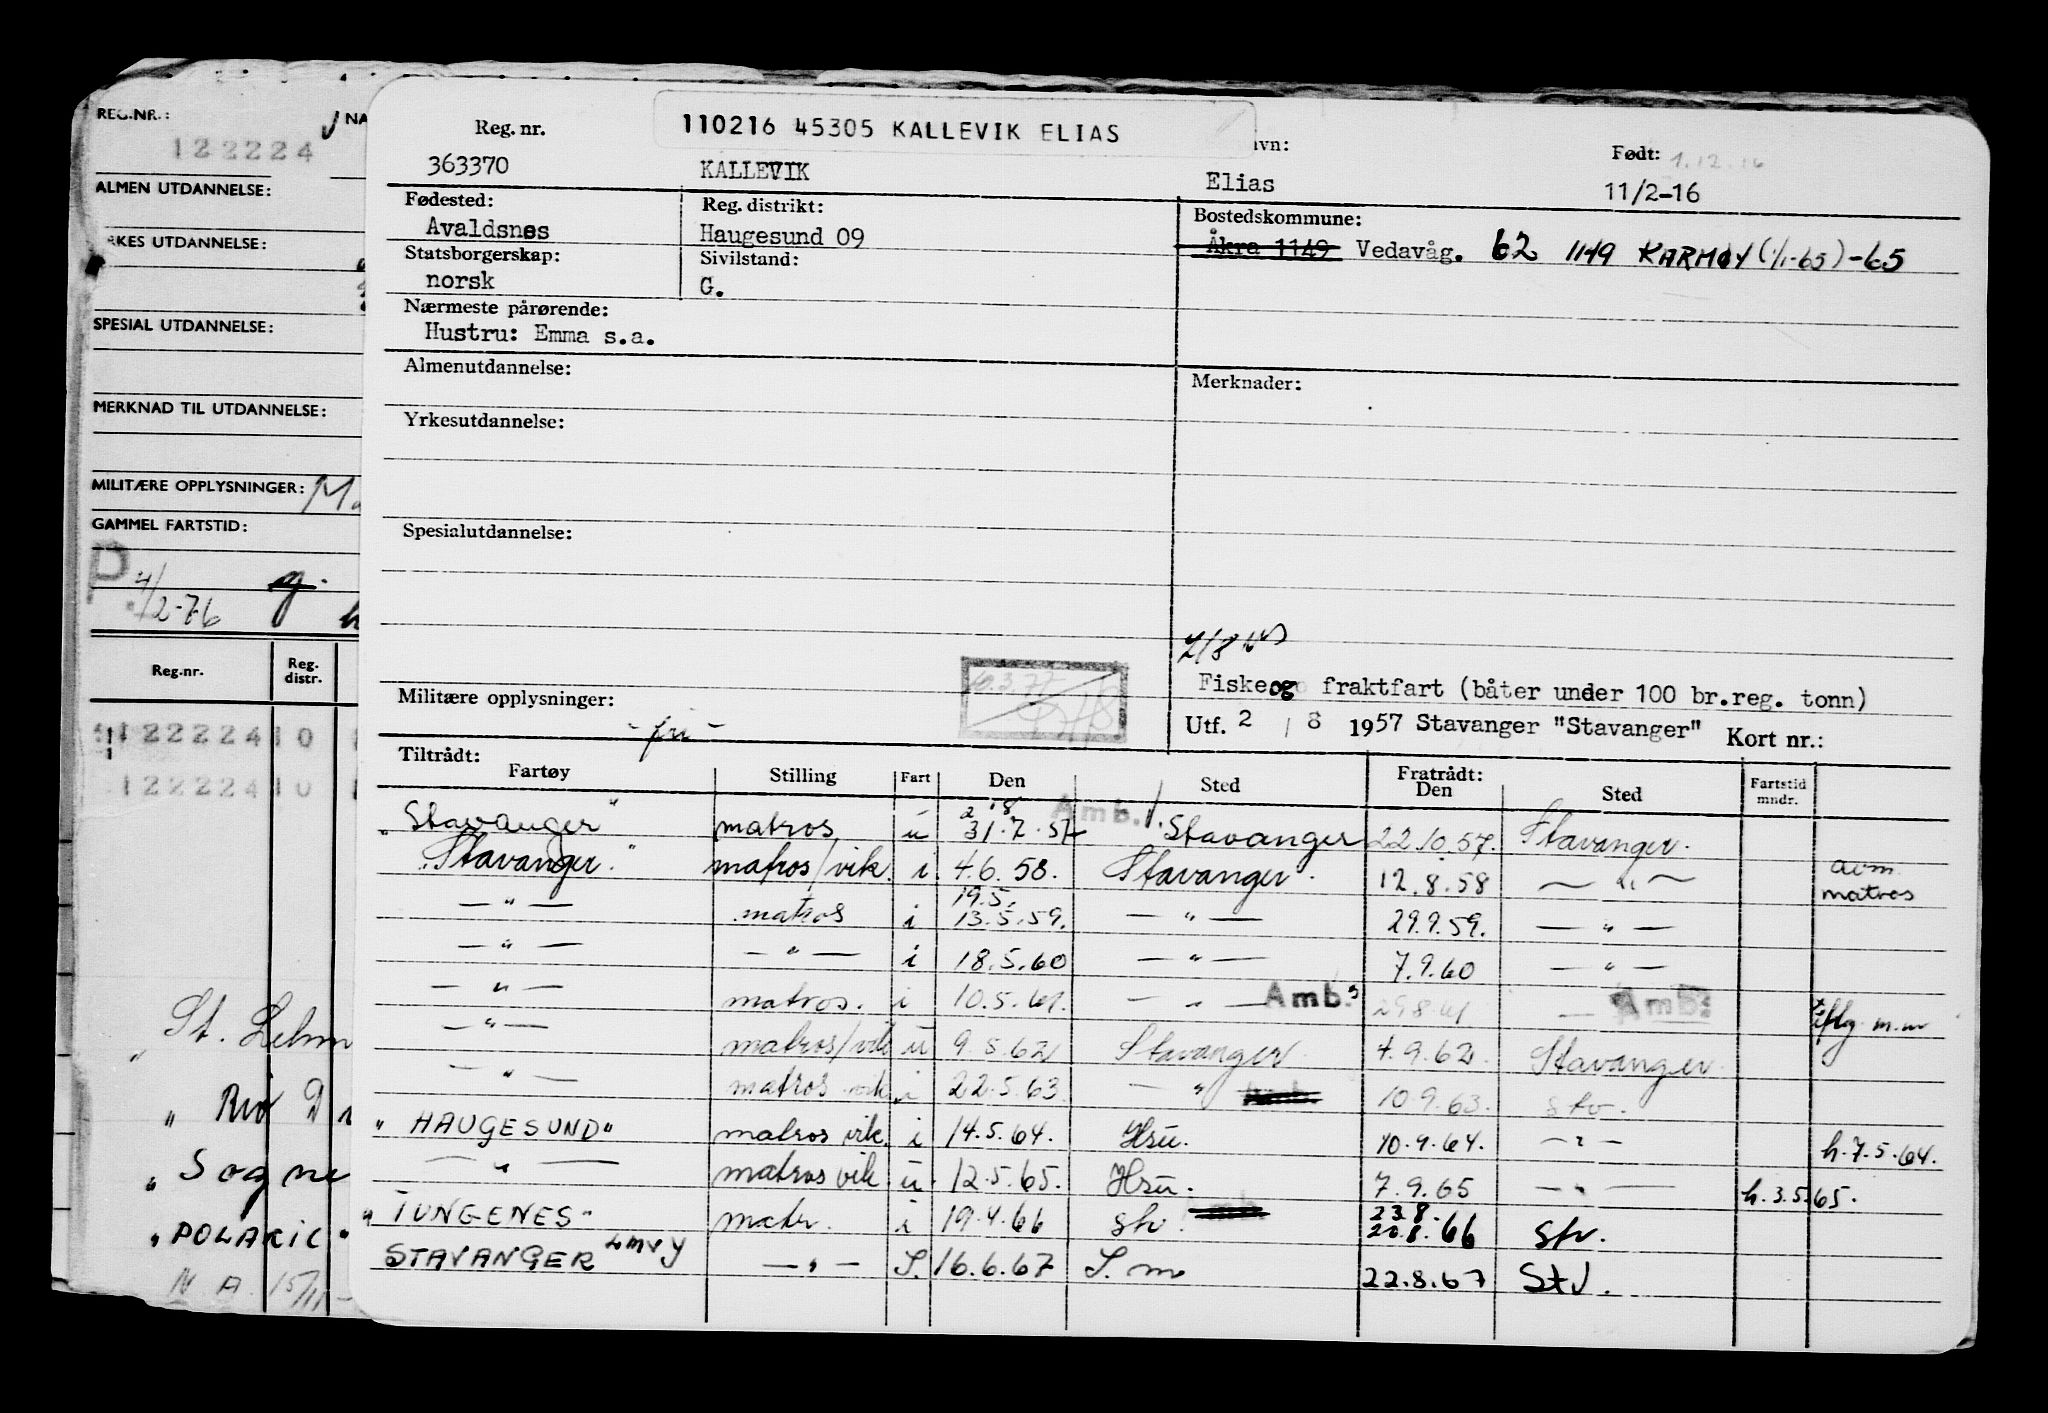 REG.NR.:
122224
ALMEN UTDANNELSE:
YRKES UTDANNELSE:
SPESIAL UTDANNELSE:
MERKNAD TIL UTDANNELSE:
MILITÆRE OPPLYSNINGER: Ma
GAMMEL FARTSTID:
Reg.nr. Reg. distr.
122224 10
122224 10
"Rio D
"Sogne
"POLARIC"
N A 15/11-
Reg. nr. 110216 45305 KALLEVIK ELIAS avn: Født: 1.12.16
363370 KALLEVIK Elias 11/2-16
Fødested: Reg. distrikt: Bostedskommune:
Avaldsnes Haugesund 09 Åkra 1149 Vedavåg. 62 1149 KARMØY (1/1-65)-65
Statsborgerskap: Sivilstand:
norsk G.
Nærmeste pårørende:
Hustru: Emma s.a.
Almenutdannelse: Merknader:
Yrkesutdannelse:
Spesialutdannelse:
Fiske og fraktfart (båter under 100 br.reg. tonn)
Militære opplysninger: - fri -
Utf. 2 / 8 1957 Stavanger "Stavanger" Kort nr.:
Tiltrådt: Fartøy Stilling Fart Den Sted Fratrådt: Den Sted Fartstid mndr.
"Stavanger" matros u 2.8 31.7.57 Amb. Stavanger 22.10.57. Stavanger.
"Stavanger" matros/vik. i 4.6.58. Stavanger. 12.8.58 — " — avm. matros
— " — matros i 19.5. 13.5.59. — " — 29.9.59. — " —
— " — — " — i 18.5.60 — " — 7.9.60 — " —
— " — matros. i 10.5.61. — " — Amb. 29.8.61 — Amb.
— " — matros/vik u 9.5.62 Stavanger. 4.9.62. Stavanger.
— " — matros vik. i 22.5.63. — " — 10.9.63. Stv.
"HAUGESUND" matros vik. i 14.5.64. Hsu. 10.9.64. — " — h.7.5.64.
— " — matros vik. u. 12.5.65. Hsu. 7.9.65 — " — h.3.5.65.
"TUNGENES" matr. i 19.4.66 Stv. 23.8. 20.8.66 Stv.
STAVANGER LMVY — " — S. 16.6.67 S. m 22.8.67 Stv.